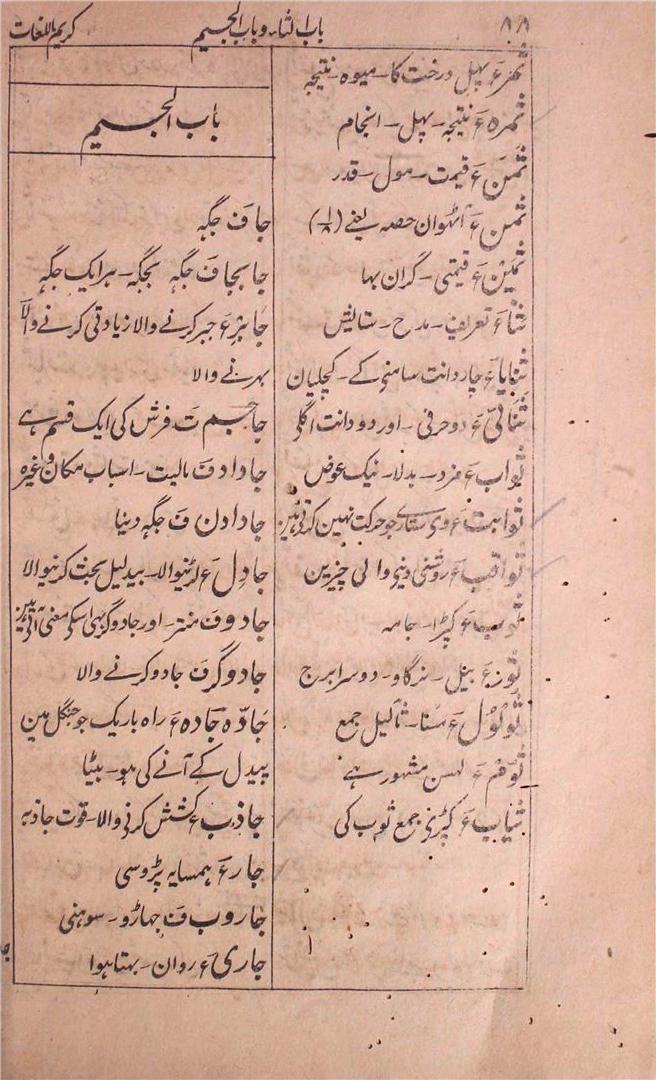 ۸۸
باب الثاء وباب الجیم
کریم اللغات
ثمر ع پہل درخت کا۔ میوہ۔ نتیجہ
ثمرہ ع نتیجہ۔ پہل۔ انجام
ثمن ع قیمت۔ مول۔ قدر
ثمن ع آٹہوان حصہ یعنے (۱/۸)
ثمین ع قیمتی۔ گران بہا
ثنا ع تعریف۔ مدح۔ ستایش
ثنایا ع چار دانت سامنی کے۔ کچلیان
ثنائی ع دو حرفی۔ اور دو دانت اگلی
ثواب ع مزد۔ بدلا۔ نیک عوض
ثوابت ع وی ستاری جو حرکت نہین کرتی ہین
ثواقب ع روشنی دینی والی چیزین
ثوب ع کپڑا۔ جامہ
ثور ع بیل۔ نرگاو۔ دوسرا برج
ثولول ع مسّا۔ ثآلیل جمع
ثوم ع لہسن مشہور ہے
ثیاب ع کپڑی جمع ثوب کی
باب الجیم
جا ف جگہ
جابجا ف جگہ بجگہ۔ ہر ایک جگہ
جابر ع جبر کرنے والا زیادتی کرنے والا
بہرنے والا
جاجم ت فرش کی ایک قسم ہے
جاداد ف مالیت۔ اسباب مکان وغیرہ
جادادن ف جگہ دینا
جادل ع لڑنیوالا۔ بیدلیل بحث کرنیوالا
جادو ف منتر۔ اور جادوگر بہی اسکی معنی آتی ہین
جادوگر ف جادو کرنے والا
جادّہ جادہ ع راہ باریک جو جنگل مین
پیدل کے آنے کی ہو۔ بیٹا
جاذب ع کشش کرنی والا۔ قوت جاذبہ
جار ع ہمسایہ پڑوسی
جاروب ف جہاڑو۔ سوہنی
جاری ع روان۔ بہتا ہوا